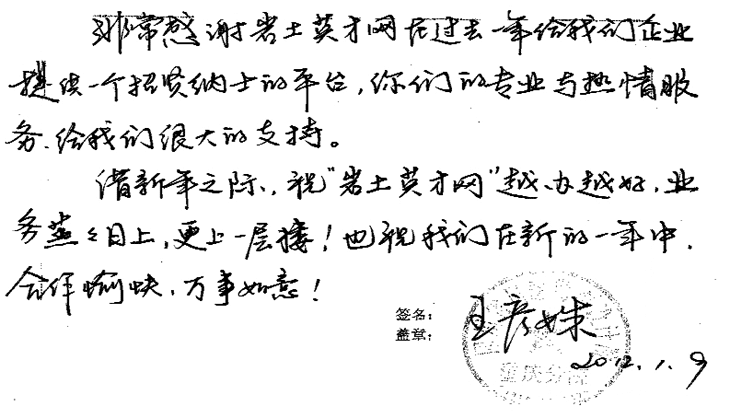 非常感谢岩土英才网在过去一年给我们企业
提供一个招贤纳士的平台,你们的专业与热情服
务、给我们很大的支持。
借新年之际,祝"岩土英才网"越办越好,业
务蒸蒸日上,更上一层楼!也祝我们在新的一年中,
合作愉快,万事如意!
签名:
盖章:
王彦姝
2012.1.9
重庆分院